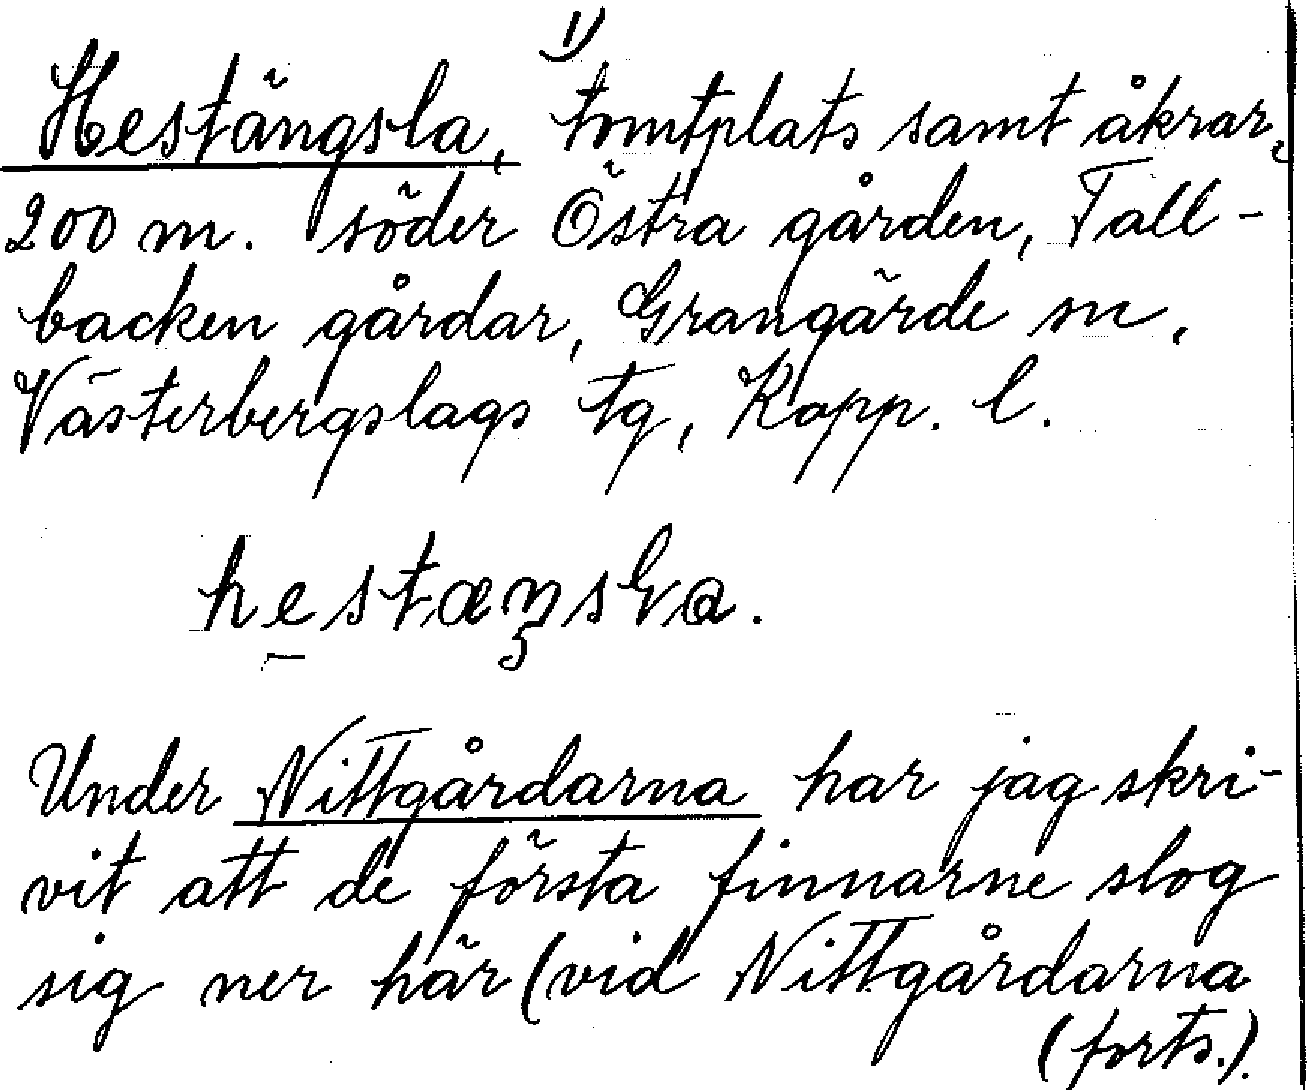 1)
Hestängsla, tomtplats samt åkrar,
200 m. söder Östra gården, Tall-
backen gårdar, Grangärde sn,
Västerbergslags tg, Kopp. l.
Under Nittgårdarna har jag skri-
vit att de första finnarne slog
sig ner här (vid Nittgårdarna
(forts.).